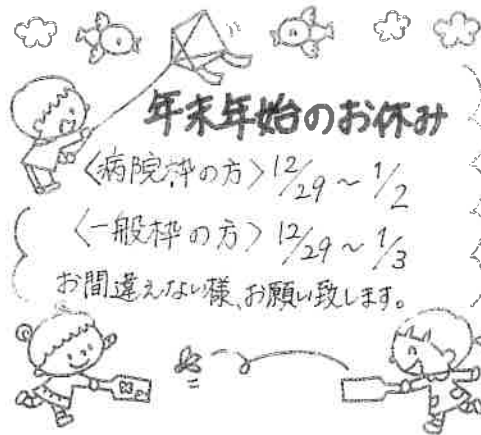 年末年始のお休み
〈病院枠の方〉12/29～1/2
〈一般枠の方〉12/29～1/3
お間違えない様、お願い致します。